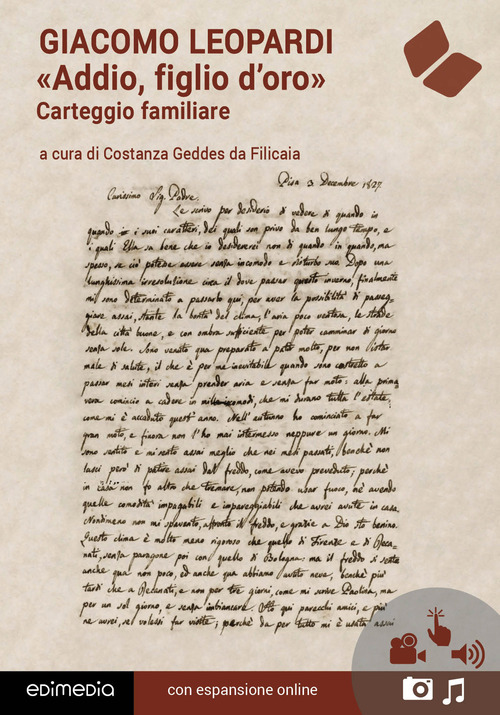 GIACOMO LEOPARDI
«Addio, figlio d'oro»
Carteggio familiare
a cura di Costanza Geddes da Filicaia
Pisa 3 Decembre 1827.
Carissimo Sig. Padre.
Le scrivo per desiderio di vedere di quando in
quando i suoi caratteri, dei quali son privo da ben lungo tempo, e
i quali Ella sa bene che io desidererei non di quando in quando, ma
spesso, se ciò potesse essere senza incomodo e disturbo suo. Dopo una
lunghissima irresoluzione circa il dove passar questo inverno, finalmente
mi sono determinato a passarlo qui, per aver la possibilità di passeg-
giare assai, stante la bontà del clima, l'aria poco ventosa, le strade
della città buone, e con ombra sufficiente per poter camminar di giorno
senza sole. Sono venuto qua preparato a patir molto, per non istar
male di salute, il che è per me inevitabile quando sono costretto a
passar mesi interi senza prender aria e senza far moto: alla prima
vera comincio a cadere in mille incomodi, che mi durano tutta l'estate,
come mi è accaduto quest'anno. Nell'autunno ho cominciato a far
gran moto, e finora non l'ho mai intermesso neppure un giorno. Mi
sono sentito e mi sento assai meglio che nei mesi passati, benchè non
lasci però di patire assai dal freddo, come avevo preveduto; perchè
in casa non fo altro che tremare, non potendo usar fuoco, nè avendo
quelle comodità impagabili e impareggiabili che avrei avute in casa.
Nondimeno non mi spavento, affronto il freddo, e grazie a Dio sto benino.
Questo clima è molto meno rigoroso che quello di Firenze e di Reca-
nati, senza paragone poi con quello di Bologna: ma il freddo si sente
anche qua non poco, ed anche qua abbiamo avuto neve, benchè più
tardi che a Recanati, e non per tre giorni, come mi scrive Paolina, ma
per un sol giorno, e senza imbiancare. Ho qui parecchi amici, e più
ne avrei, se volessi far visite; perchè da per tutto mi è usata assai
edimedia
con espansione online